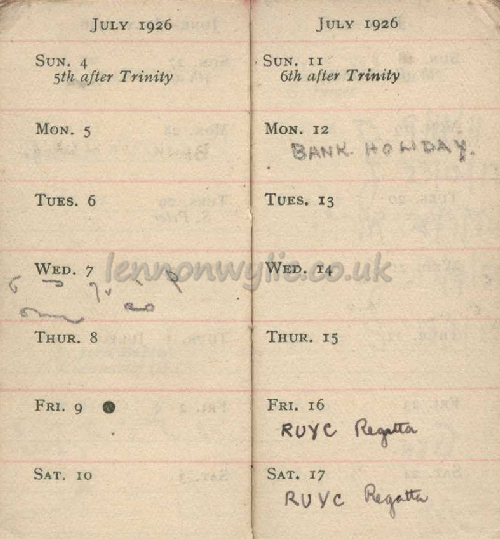 JULY 1926
SUN. 4
5th after Trinity
MON. 5
TUES. 6
WED. 7
THUR. 8
FRI. 9
SAT. 10
JULY 1926
SUN. 11
6th after Trinity
MON. 12
BANK HOLIDAY.
TUES. 13
WED. 14
THUR. 15
FRI. 16
RUYC Regatta
SAT. 17
RUYC Regatta
lennonwylie.co.uk